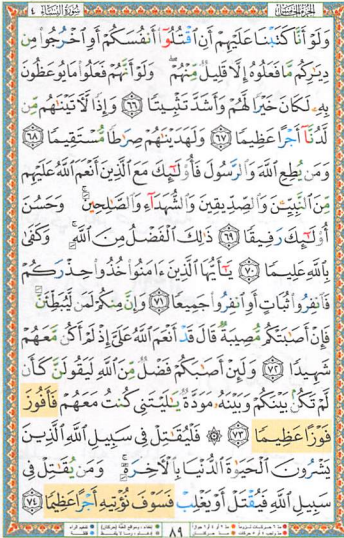 الجزء الخامس سورة النساء ٤
وَلَوْ أَنَّا كَتَبْنَا عَلَيْهِمْ أَنِ ٱقْتُلُوٓا۟ أَنفُسَكُمْ أَوِ ٱخْرُجُوا۟ مِن
دِيَٰرِكُم مَّا فَعَلُوهُ إِلَّا قَلِيلٌ مِّنْهُمْ ۖ وَلَوْ أَنَّهُمْ فَعَلُوا۟ مَا يُوعَظُونَ
بِهِۦ لَكَانَ خَيْرًا لَّهُمْ وَأَشَدَّ تَثْبِيتًا ٦٦ وَإِذًا لَّءَاتَيْنَٰهُم مِّن
لَّدُنَّآ أَجْرًا عَظِيمًا ٦٧ وَلَهَدَيْنَٰهُمْ صِرَٰطًا مُّسْتَقِيمًا ٦٨
وَمَن يُطِعِ ٱللَّهَ وَٱلرَّسُولَ فَأُو۟لَٰٓئِكَ مَعَ ٱلَّذِينَ أَنْعَمَ ٱللَّهُ عَلَيْهِم
مِّنَ ٱلنَّبِيِّۦنَ وَٱلصِّدِّيقِينَ وَٱلشُّهَدَآءِ وَٱلصَّٰلِحِينَ ۚ وَحَسُنَ
أُو۟لَٰٓئِكَ رَفِيقًا ٦٩ ذَٰلِكَ ٱلْفَضْلُ مِنَ ٱللَّهِ ۚ وَكَفَىٰ
بِٱللَّهِ عَلِيمًا ٧٠ يَٰٓأَيُّهَا ٱلَّذِينَ ءَامَنُوا۟ خُذُوا۟ حِذْرَكُمْ
فَٱنفِرُوا۟ ثُبَاتٍ أَوِ ٱنفِرُوا۟ جَمِيعًا ٧١ وَإِنَّ مِنكُمْ لَمَن لَّيُبَطِّئَنَّ
فَإِنْ أَصَٰبَتْكُم مُّصِيبَةٌ قَالَ قَدْ أَنْعَمَ ٱللَّهُ عَلَىَّ إِذْ لَمْ أَكُن مَّعَهُمْ
شَهِيدًا ٧٢ وَلَئِنْ أَصَٰبَكُمْ فَضْلٌ مِّنَ ٱللَّهِ لَيَقُولَنَّ كَأَن
لَّمْ تَكُنۢ بَيْنَكُمْ وَبَيْنَهُۥ مَوَدَّةٌ يَٰلَيْتَنِى كُنتُ مَعَهُمْ فَأَفُوزَ
فَوْزًا عَظِيمًا ٧٣ ۞ فَلْيُقَٰتِلْ فِى سَبِيلِ ٱللَّهِ ٱلَّذِينَ
يَشْرُونَ ٱلْحَيَوٰةَ ٱلدُّنْيَا بِٱلْءَاخِرَةِ ۚ وَمَن يُقَٰتِلْ فِى
سَبِيلِ ٱللَّهِ فَيُقْتَلْ أَوْ يَغْلِبْ فَسَوْفَ نُؤْتِيهِ أَجْرًا عَظِيمًا ٧٤
٨٩